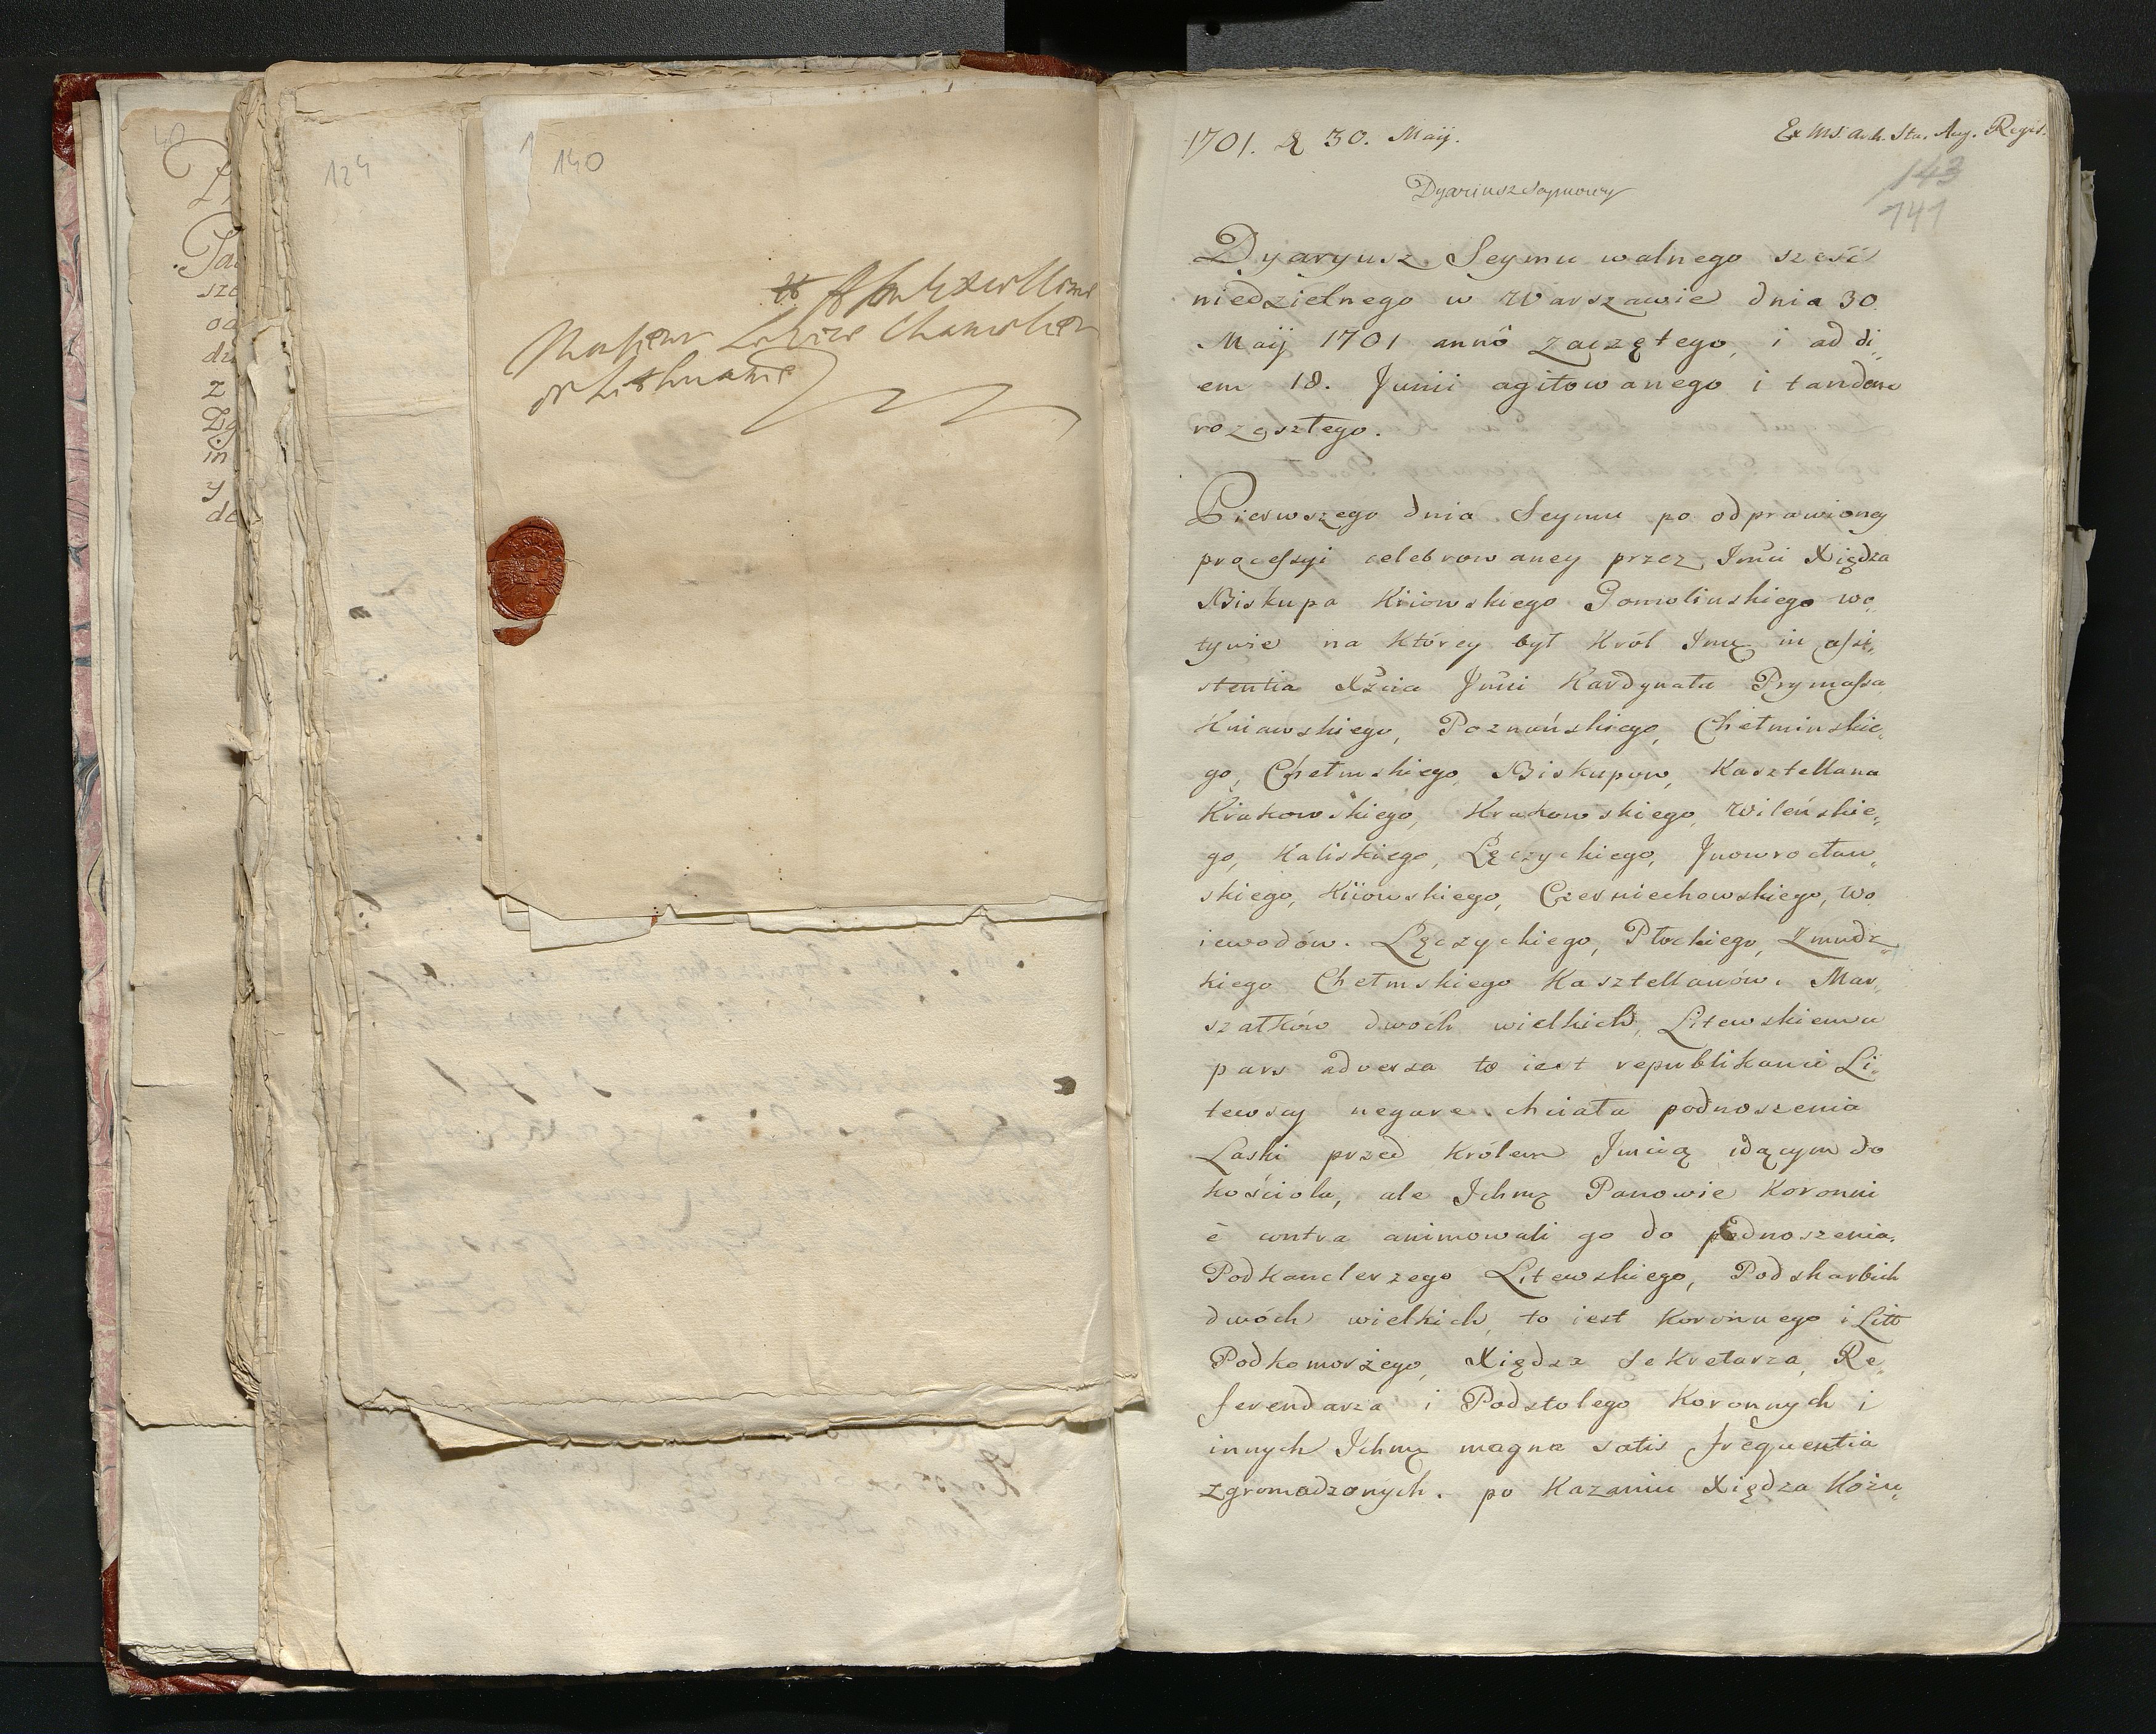 40
124
140
Monsieur
Chancelier
de Lithuanie
1701. d 30. Maij.
Ex MS. Arch. Sta. Aug. Regis.
Dyariusz Seymowy
143
141
Dyaryusz Seymu walnego sześć
niedzielnego w Warszawie dnia 30
Maij 1701 annô zaczętego, i ad di„
em 18. Junii agitowanego i tandem
rozeszłego.
Pierwszego dnia Seymu po odprawioney
processyi celebrowaney przez Jmći Xiędza
Biskupa Kiiowskiego Gomolinskiego wo„
tywie na którey był Król Jmć in assi„
stentia Xżcia Jmći Kardynała Prymassa
Kuiawskiego, Poznańskiego, Chełminskie„
go, Chełmskiego Biskupow, Kasztellana
Krakowskiego, Krakowskiego, Wileńskie„
go, Kaliskiego, Łęczyckiego, Jnowrocław„
skiego, Kiiowskiego, Czerniechowskiego, Wo
iewodów. Łęczyckiego, Płockiego, Zmudz„
kiego Chełmskiego Kasztellanów. Mar„
szałków dwóch wielkich, Litewskiemu
pars adversa to iest republikanci Li„
tewscy negare chciała podnoszenia
Laski przed Królem Jmcią idącym do
kościoła, ale Ichmć Panowie Koronni
è contra animowali go do podnoszenia.
Podkanclerzego Litewskiego, Podskarbich
dwóch wielkich, to iest Koronnego i Litt
Podkomorżego, Xiędza Sekretarza, Re„
ferendarza i Podstolego Koronnych i
innych Ichmć magna satis frequentia
zgromadzonych. po Kazaniu Xiędza Kożu„